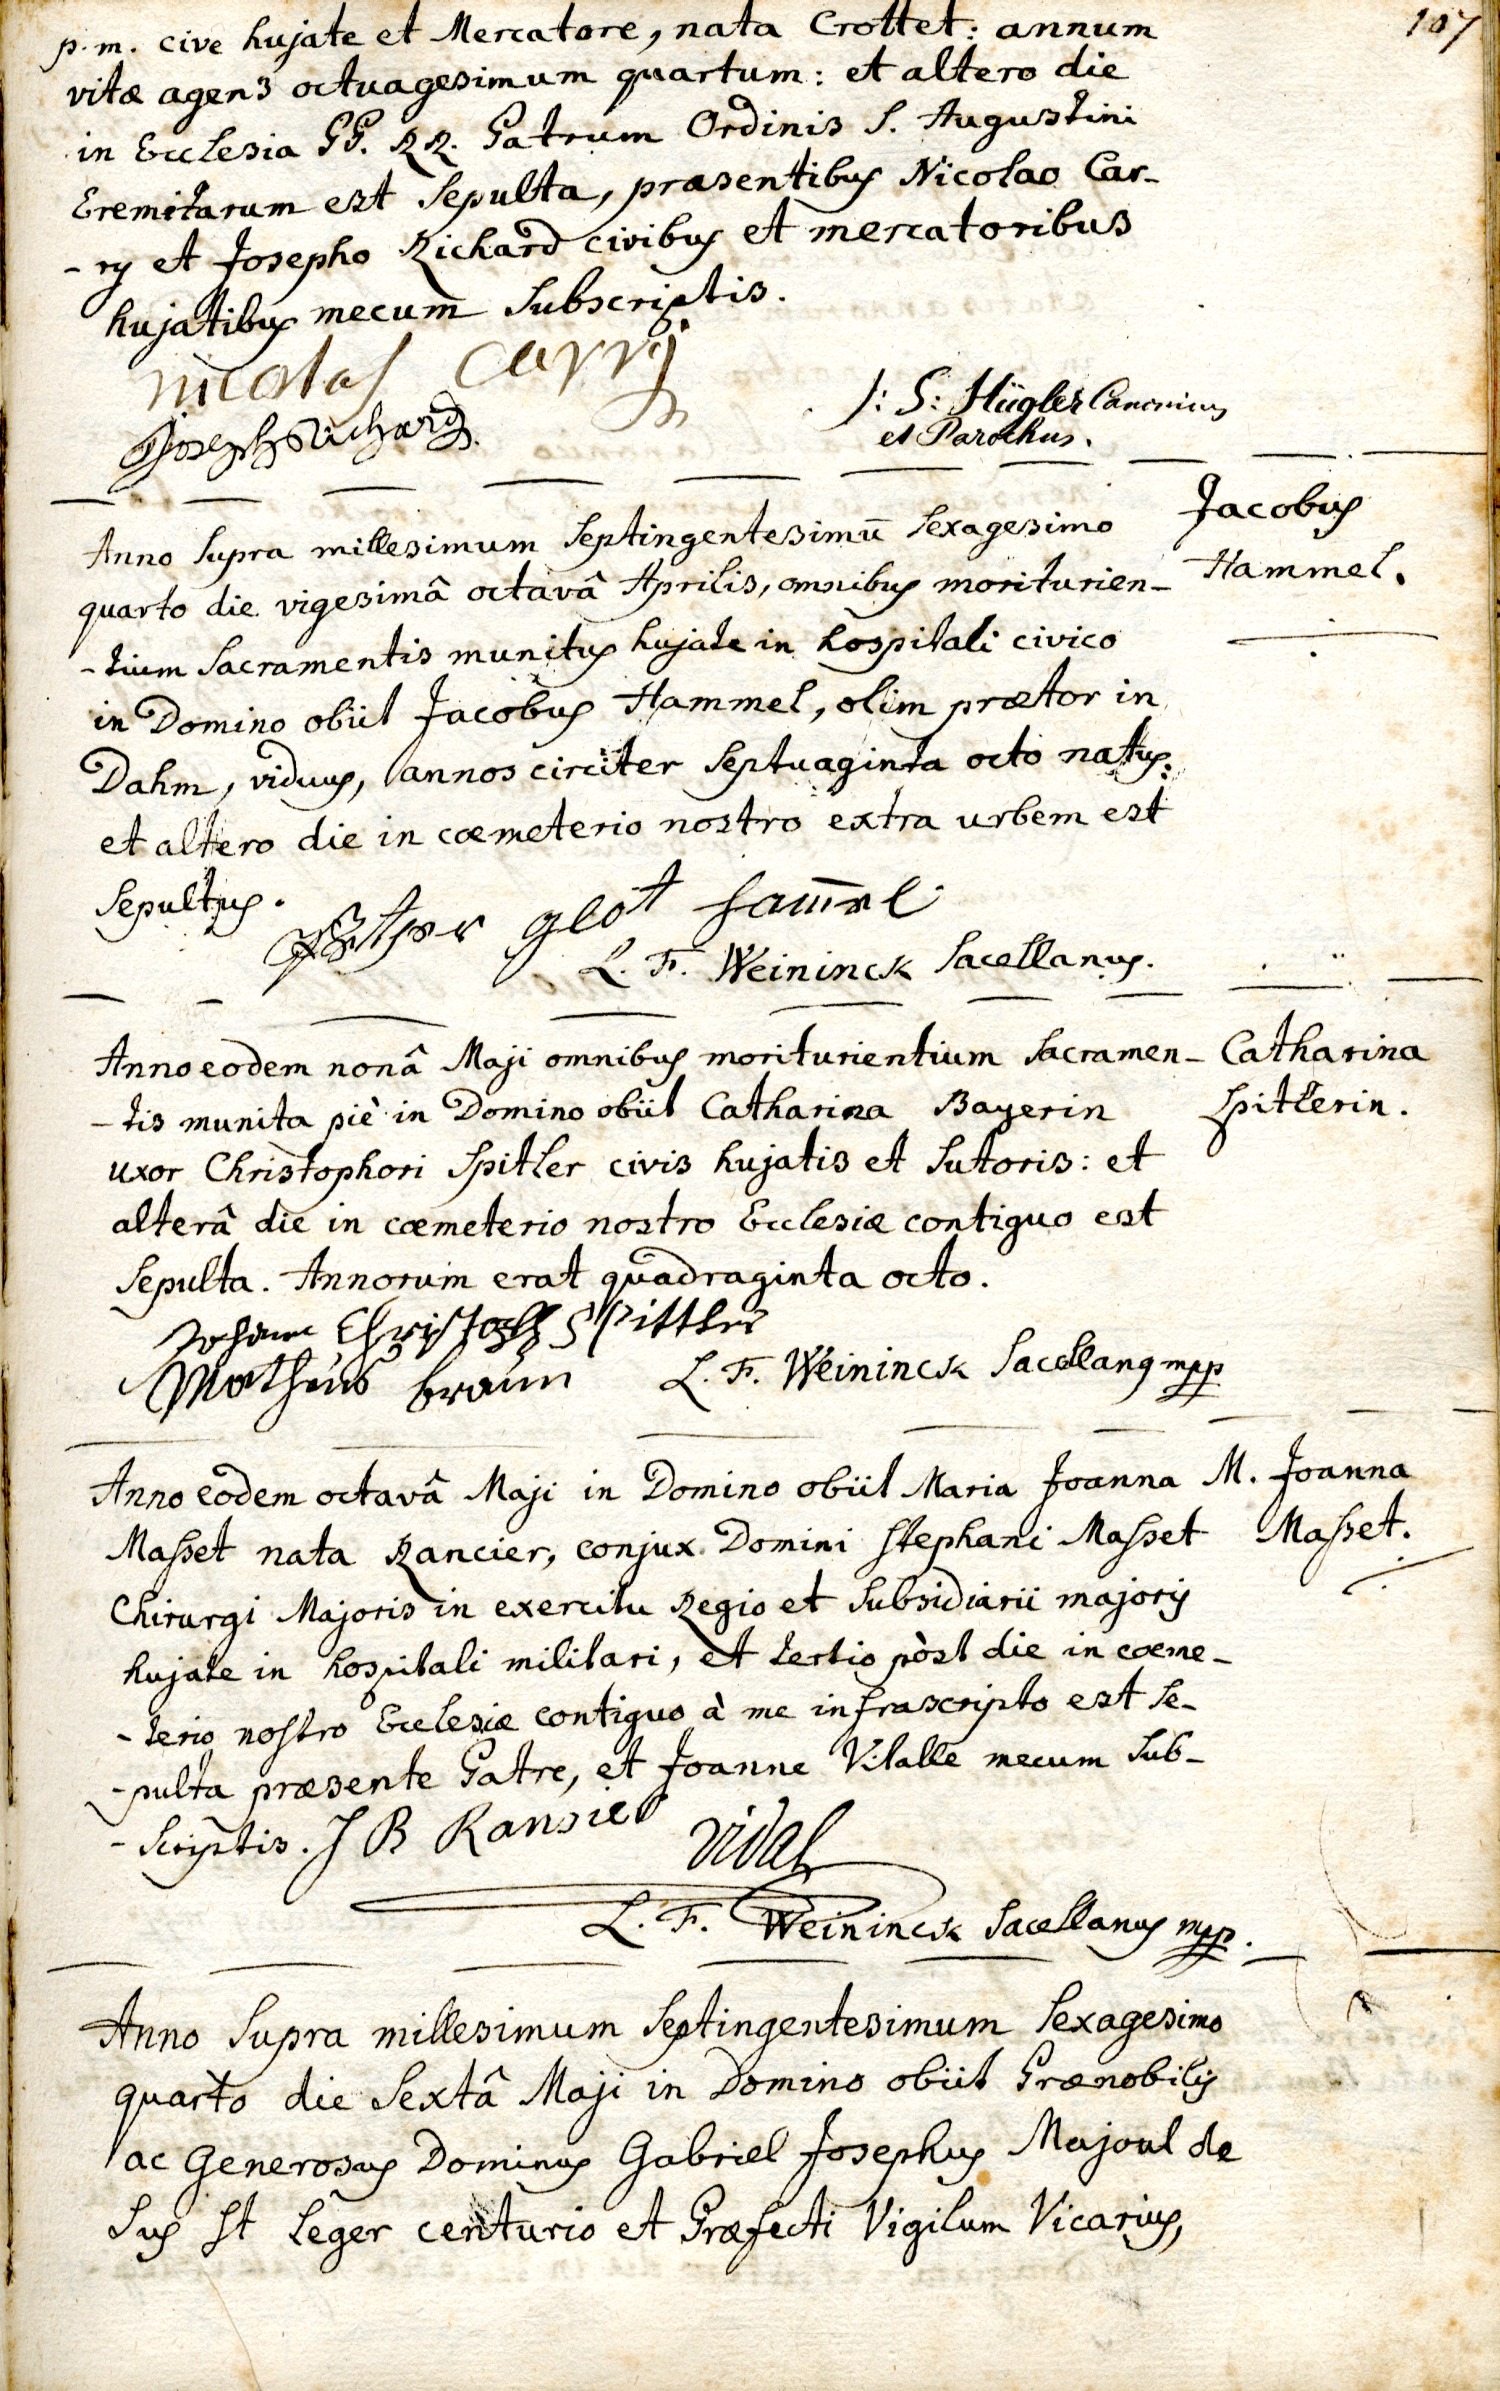 107
p. m. cive hujate et Mercatore, nata Crottet: annum
vitæ agens octuagesimum quartum: et altero die
in Ecclesia PP. RR. Patrum Ordinis S. Augustini
Eremitarum est Sepulta, præsentibus Nicolao Car-
-ry et Josepho Richard civibus et mercatoribus
hujatibus mecum Subscriptis.
nicolas carrÿ
Joseph Richard
J: S: Hügler Canonicus
et Parochus.
Anno Supra millesimum Septingentesimū Sexagesimo
quarto die vigesimâ octavâ Aprilis, omnibus moriturien-
-tium Sacramentis munitus hujate in hospitali civico
in Domino obiit Jacobus Hammel, olim prætor in
Dahm, viduus, annos circiter Septuaginta octo natus:
et altero die in cœmeterio nostro extra urbem est
Sepultus.
Jacobus
Hammel.
L. F. Weininck Sacellanus.
Anno eodem nonâ Maji omnibus moriturientium Sacramen-
-tis munita piè in Domino obiit Catharina Bayerin
uxor Christophori Spitler civis hujatis et Sutoris: et
alterâ die in cœmeterio nostro Ecclesiæ contiguo est
Sepulta. Annorum erat quadraginta octo.
Catharina
Spitlerin.
Johann Christoph Spittler
Matheus braun
L. F. Weininck Sacellanus mpp
Anno eodem octavâ Maji in Domino obiit Maria Joanna
Masset nata Rancier, conjux Domini Stephani Masset
Chirurgi Majoris in exercitu Regio et Subsidiarii majoris
hujate in hospitali militari, et tertio pòst die in cœme-
-terio nostro Ecclesiæ contiguo à me infrascripto est Se-
-pulta præsente Patre, et Joanne Vitalle mecum Sub-
-Scriptis. J B Ransier
M. Joanna
Masset.
vidal
L. F. Weininck Sacellanus mpp.
Anno Supra millesimum Septingentesimum Sexagesimo
quarto die Sextâ Maji in Domino obiit Prænobilis
ac Generosus Dominus Gabriel Josephus Majoul de
Sus St Leger centurio et Præfecti Vigilum Vicarius,